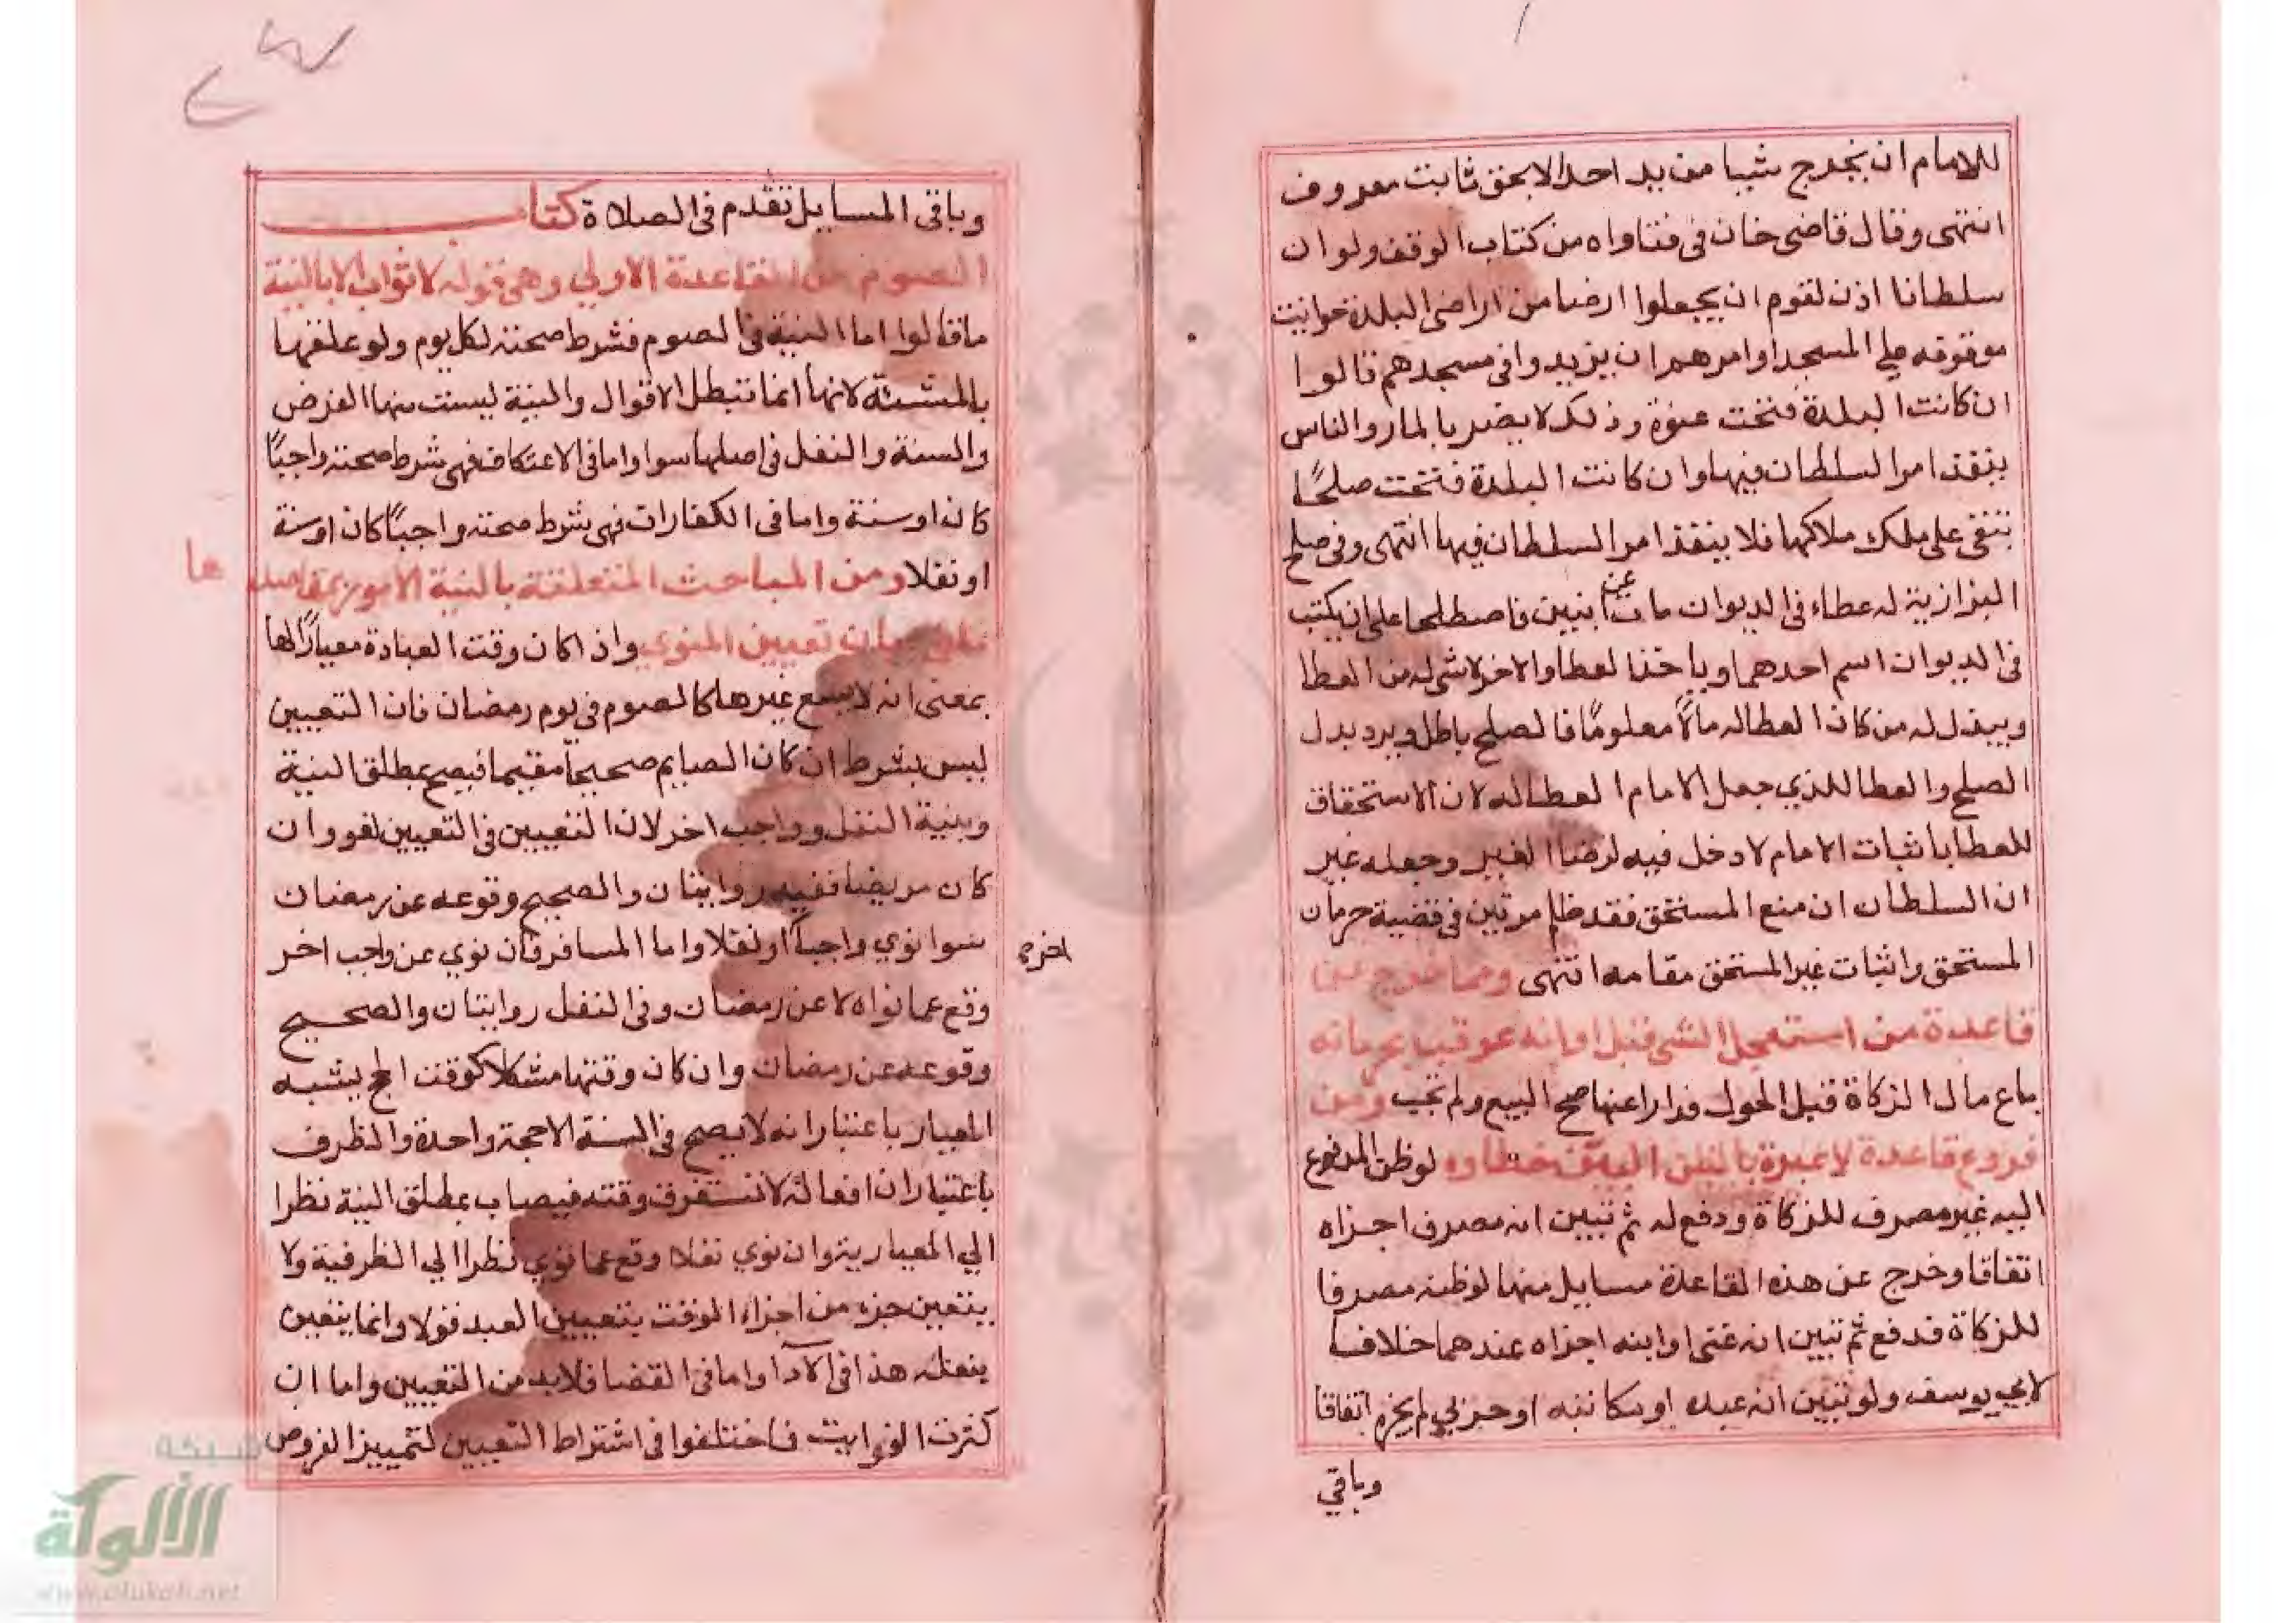 للامام ان يخرج شيا من يد احد الا بحق ثابت معروف
انتهى وقال قاضى خان فى فتاواه من كتاب الوقف ولو ان
سلطانا اذن لقوم ان يجعلوا ارضا من اراضى البلدة حوانيت
موقوفه على المسجد او امرهم ان يزيدوا فى مسجدهم قالوا
ان كانت البلدة فتحت عنوة وذلك لا يضر بالمار والناس
ينفذ امر السلطان فيها وان كانت البلدة فتحت صلحًا
تبقى على ملك ملاكها فلا ينفذ امر السلطان فيها انتهى وفى صلح
البزازية له عطاء فى الديوان مات عن ابنين فاصطلحا على ان يكتب
فى الديوان اسم احدهما وياخذ العطا والاخر لا شى له من العطا
ويبذل له من كان العطا له مالًا معلومًا فالصلح باطل ويرد بدل
الصلح والعطا للذي جعل الامام العطا له لان الاستحقاق
للعطا باثبات الامام لا دخل فيه لرضا الغير وجعله غير
ان السلطان ان منع المستحق فقد ظلم مرتين فى قضية حرمان
المستحق واثبات غير المستحق مقامه انتهى ومما خرج عن
قاعدة من استعجل الشى قبل اوانه عوقب بحرمانه
باع مال الزكاة قبل الحول فرارا عنها صح البيع ولم تجب ومن
فروع قاعدة لا عبرة بالظن البين خطاوه لو ظن المدفوع
اليه غير مصرف للزكاة ودفع له ثم تبين انه مصرف اجزاه
اتفاقا وخرج عن هذه القاعدة مسايل منها لو ظنه مصرفا
للزكاة فدفع ثم تبين انه غنى او ابنه اجزاه عندهما خلافا
لابي يوسف ولو تبين انه عبده او مكاتبه او حربي لم يجزه اتفاقا
وباقي
وباقى المسايل تقدم فى الصلاة كتاب
الصوم من القاعدة الاولي وهى قوله لا ثواب الا بالنية
ما قالوا اما النية فى الصوم فشرط صحته لكل يوم ولو علقها
بالمشئة لانها انما تبطل الاقوال والنية ليست منها الفرض
والسنة والنفل فى اصلها سوا واما فى الاعتكاف فهى شرط صحته واجبًا
كان او سنة واما فى الكفارات فهى شرط صحته واجبًا كان او سنة
او نفلا ومن المباحث المتعلقة بالنية الامور بمقاصدها
بيان تعيين المنوي واذا كان وقت العبادة معيارًا لها
بمعنى انه لا يسع غيرها كالصوم فى يوم رمضان فان التعيين
ليس بشرط ان كان الصايم صحيحًا مقيما فيصح بمطلق النية
وبنية النفل وواجب اخر لان التعيين فى التعيين لغو وان
كان مريضا ففيه روايتان والصحيح وقوعه عن رمضان
سوا نوي واجبا اخر او نفلا واما المسافر فان نوي عن واجب اخر
وقع عما نواه لا عن رمضان وفى النفل روايتان والصحيح
وقوعه عن رمضان وان كان وقتها مشكلا كوقت الحج يشبه
المعيار باعتبار انه لا يصح فى السنة الا حجة واحدة والظرف
باعتبار ان افعاله لا تستغرق وقته فيصاب بمطلق النية نظرا
الي المعيارية وان نوي نفلا وقع عما نوي نظرا الي الظرفية ولا
يتعين جزء من اجزاء الوقت بتعيين العبد قولا وانما يتعين
بفعله هذا فى الآدا واما فى القضا فلا بد من التعيين واما ان
كثرت الفوايت فاختلفوا فى اشتراط التعيين لتمييز الفروض
شبكة
الألوكة
www.alukah.net